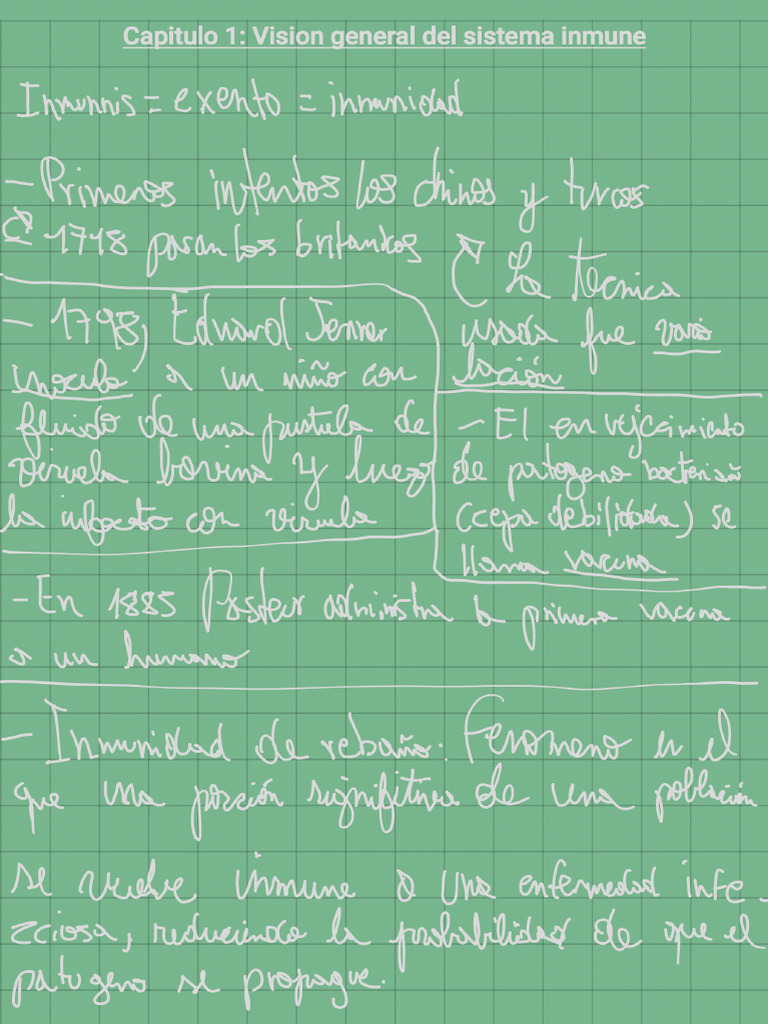 Capitulo 1: Vision general del sistema inmune
Inmunnis = exento = inmunidad
- Primeros intentos los chinos y turcos
1718 pasan los britanicos
La tecnica
usada fue vario
lación
- 1798, Edward Jenner
inocula a un niño con
fluido de una pustula de
viruela bovina y luego
lo infecto con viruela
- El envejecimiento
de patogeno bacteriano
(cepa debilitada) se
llama vacuna
- En 1885 Pasteur administra la primera vacuna
a un humano
- Inmunidad de rebaño: Fenomeno en el
que una porción signifitiva de una población
se vuelve inmune a una enfermedad infe
cciosa, reduciendo la probabilidad de que el
patogeno se propague.